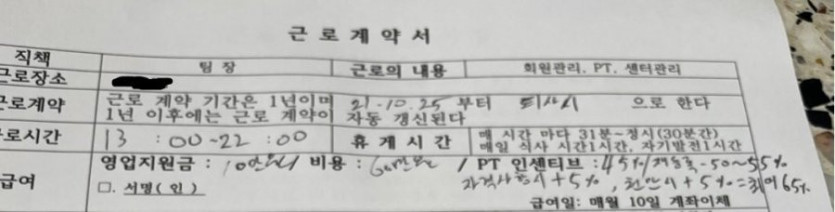 근로계약서
직책 팀장 근로의 내용 회원관리, PT, 센터관리
근로장소
근로계약 근로 계약 기간은 1년이며 21-10.25 부터 퇴사시 으로 한다
1년 이후에는 근로 계약이 자동 갱신된다
근로시간 13 : 00-22 : 00 휴게시간 매 시간 마다 31분~정시(30분간)
매일 식사 시간1시간, 자기발전1시간
급여 영업지원금 : 10만원 비용 : 60만원 / PT 인센티브 : 45%/재등록-50~55%
+5%, +5%=최대65%
□. 서명( 인 )
급여일: 매월 10일 계좌이체